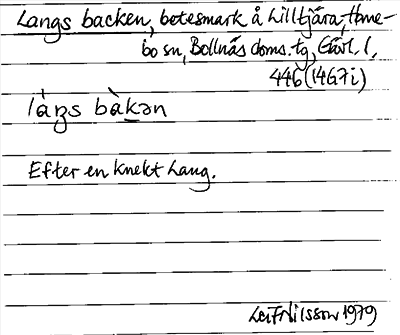 Langs backen, betesmark å Lilltjära, Hane-
bo sn, Bollnäs doms.tg, Gävl. l,
446 (14G7i)
làŋs bàkən
Efter en knekt Lang.
Leif Nilsson 1979